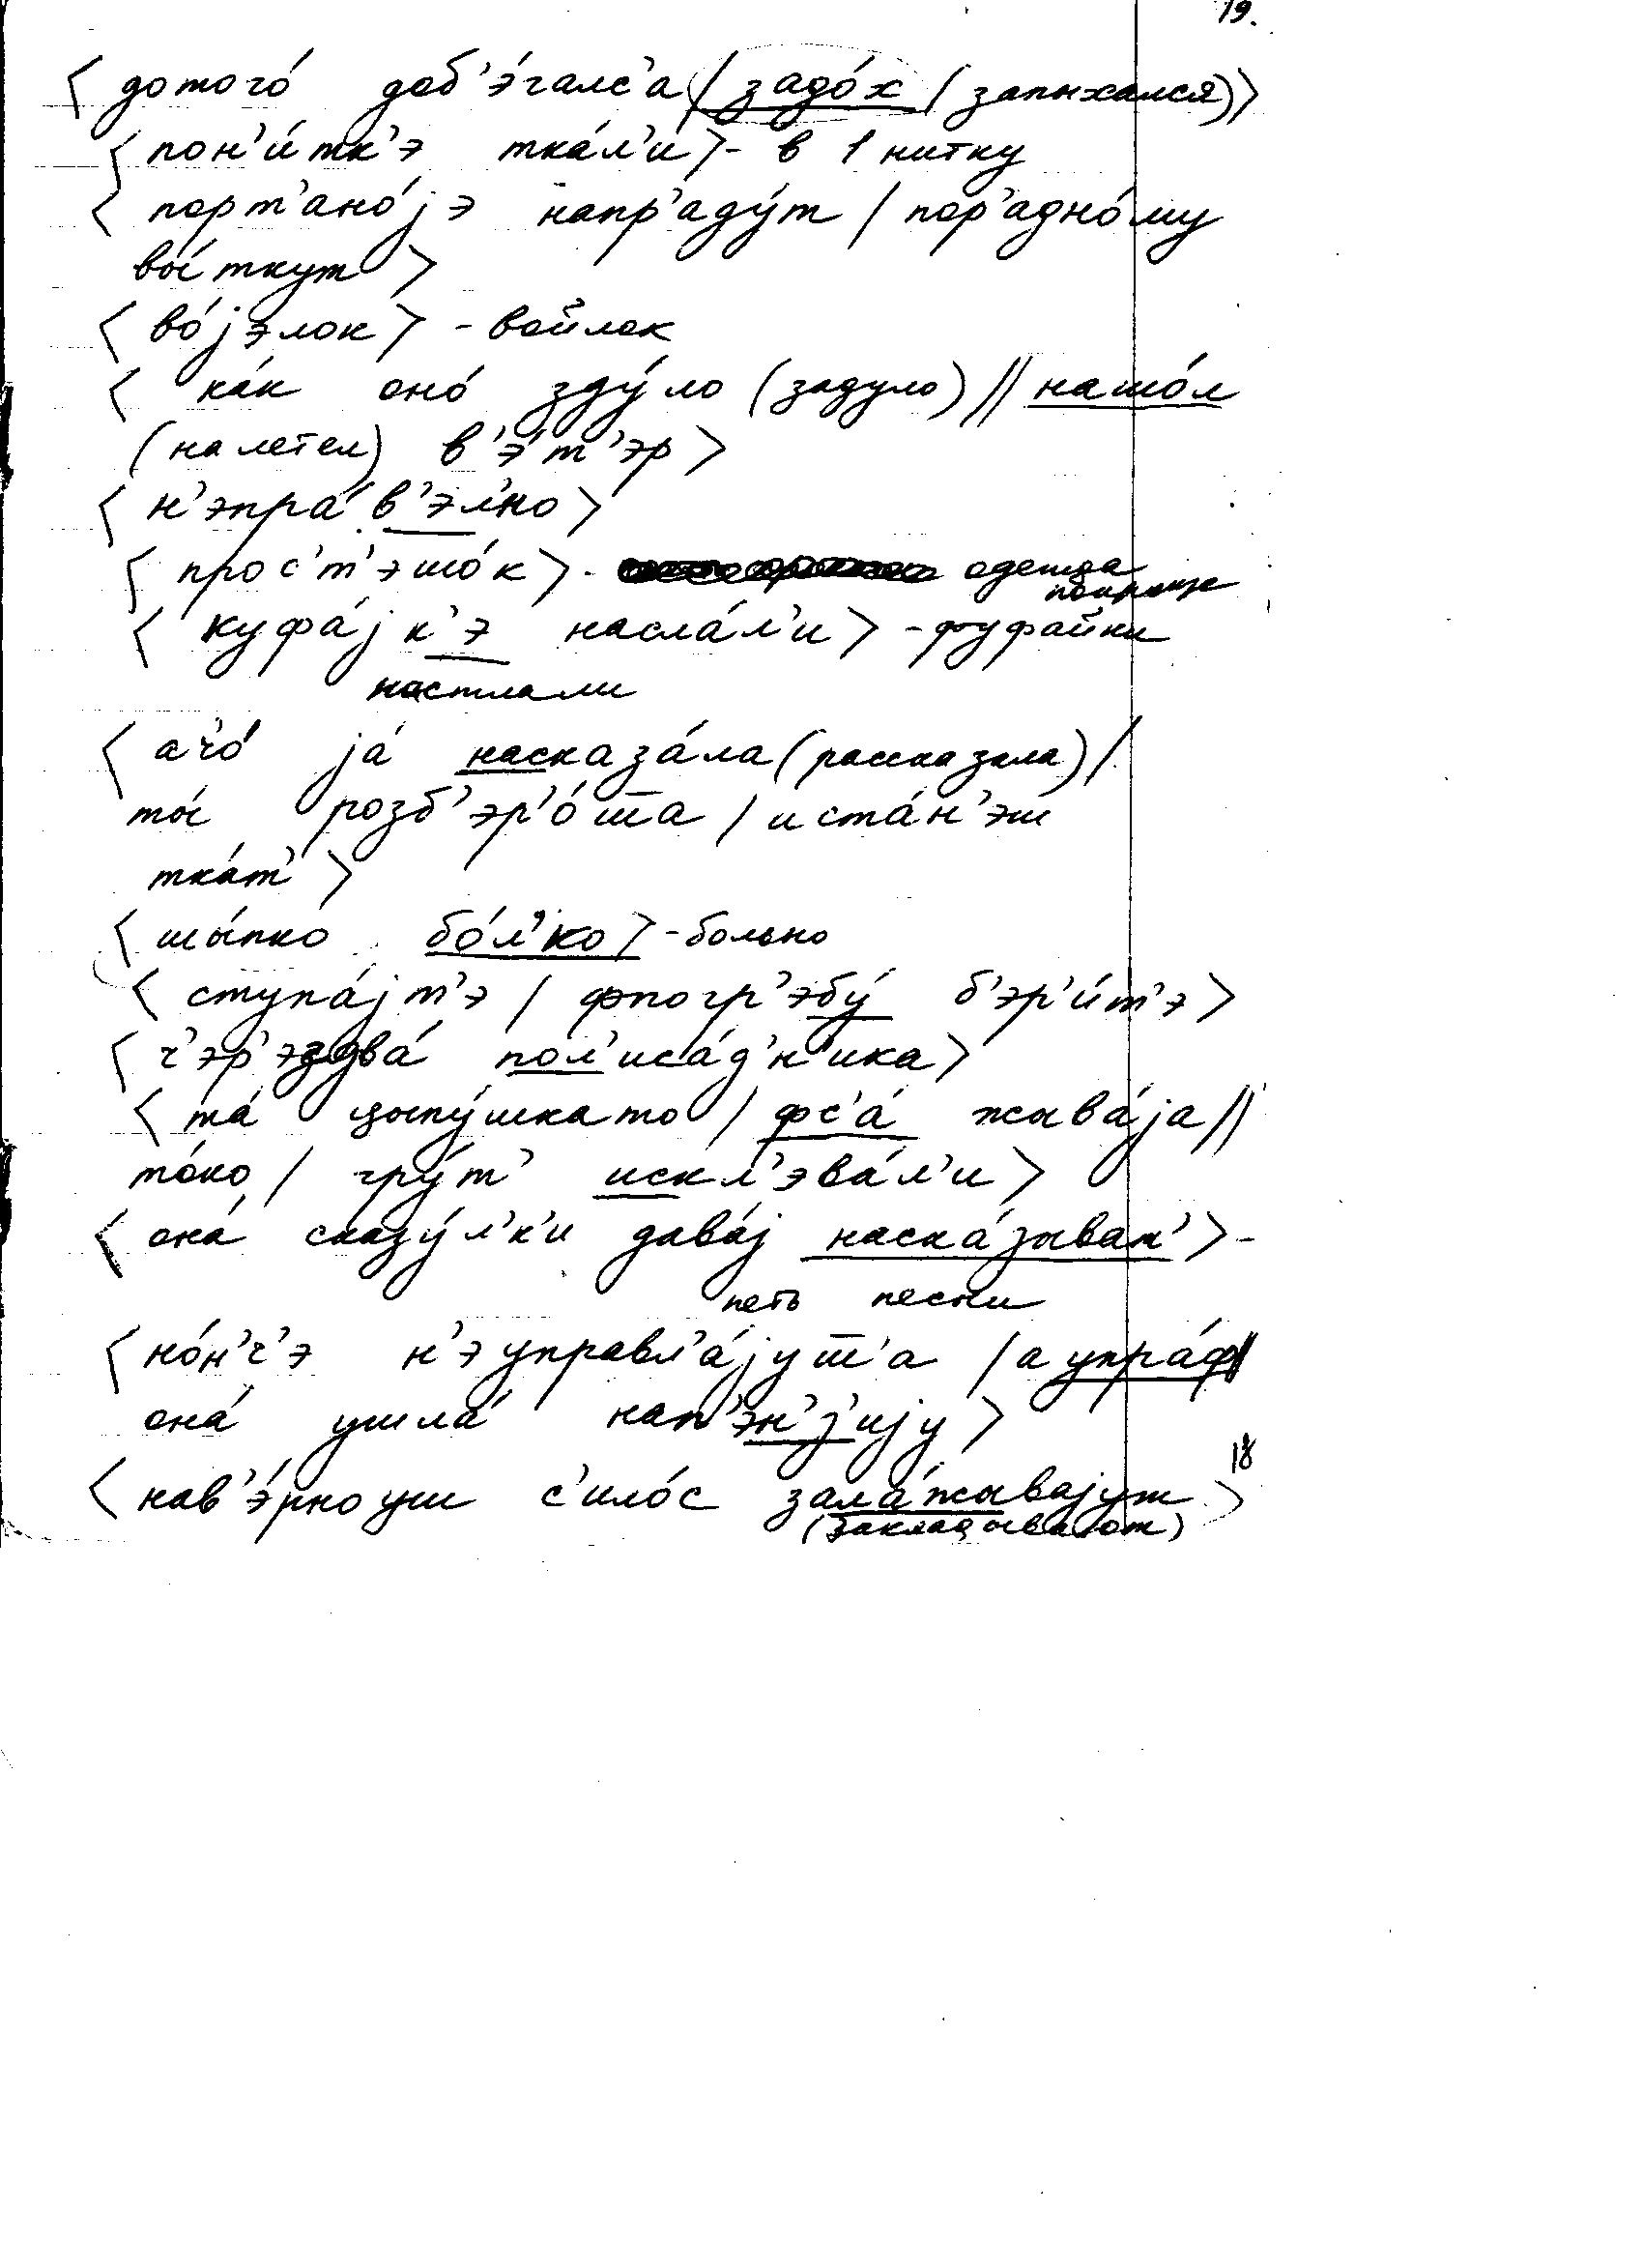 19.
⟨ дотого́ доб'э́галс'а / задо́х ( запыхался) ⟩
⟨ пон'и́тк'э тка́л'и ⟩ - в 1 нитку
⟨ порт'ано́jэ напр'аду́т / пор'адно́му
вы́ткут ⟩
⟨ во́jэлок ⟩ - войлок
⟨ ка́к оно́ зду́ло (задуло) // нашо́л
(налетел) в'э́т'эр ⟩
⟨ н'эпра́в'эл'но ⟩
⟨ прос'т'эшо́к ⟩ - одежда
попроще
⟨ куфа́jк'э насла́л'и ⟩ - фуфайки
настлали
⟨ ач'о́ jа́ насказа́ла (рассказала) /
ты́ розб'эр'о́ш̅а / иста́н'эш
тка́т' ⟩
⟨ шы́пко бо́л'ко ⟩ - больно
⟨ ступа́jт'э / фпогр'эбу́ б'эр'и́т'э ⟩
⟨ ч'эр'эздва́ пол'иса́д'н'ика ⟩
⟨ та́ цыпу́шкато / фс'а́ жыва́jа //
то́ко / гру́т' искл'эва́л'и ⟩
⟨ она́ сказу́л'к'и дава́j наска́зыват' ⟩ -
петь песни
⟨ но́н'ч'э н'эуправл'а́jут̅'а / а упра́ф //
она́ ушла́ нап'э́н'з'иjу ⟩
⟨ нав'э́рноуш с'ило́с зала́жываjут ⟩ 18
(закладывают)